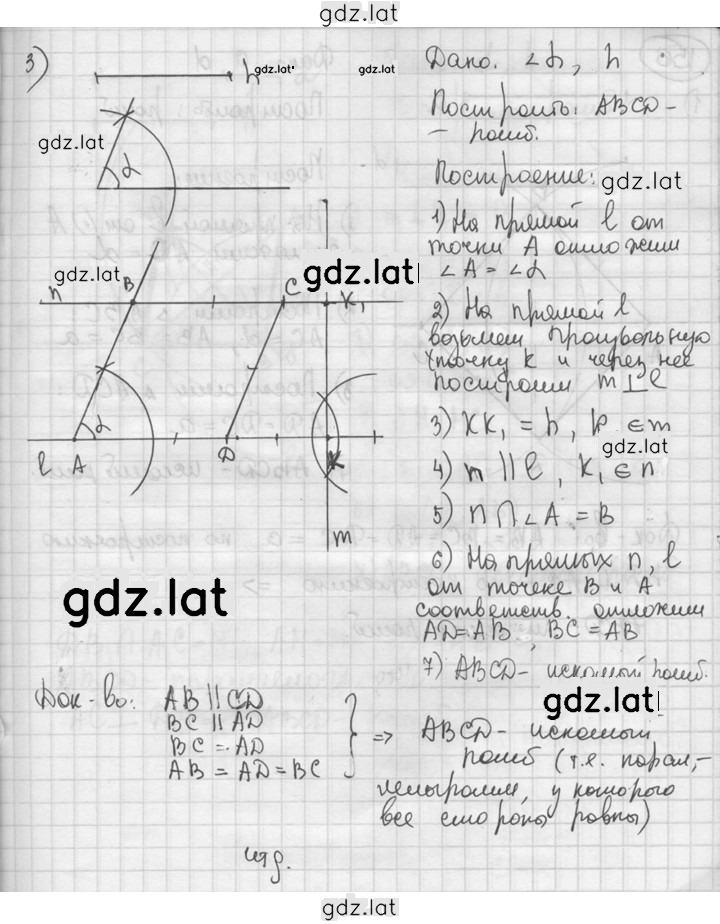 gdz.lat
3)
h gdz.lat
gdz.lat
Дано: ∠α, h
Построить: ABCD -
- ромб.
gdz.lat
α
Построение:
gdz.lat
1) На прямой l от
точки A отложим
∠A = ∠α
gdz.lat
gdz.lat
n B C K₁
2) На прямой l
возьмем произвольную
точку K и через нее
построим m⊥l
3) KK₁ = h, K ∈ m
gdz.lat
α
l A D K
4) n || l, K₁ ∈ n
5) n ∩ ∠A = B
m
6) На прямых n, l
от точек B и A
соответств. отложим
AD=AB, BC=AB
gdz.lat
7) ABCD - искомый ромб.
gdz.lat
Док-во: AB || CD
BC || AD
BC = AD
AB = AD = BC
=> ABCD - искомый
ромб (т.е. парал-
лелограмм, у которого
все стороны равны)
чтд.
gdz.lat